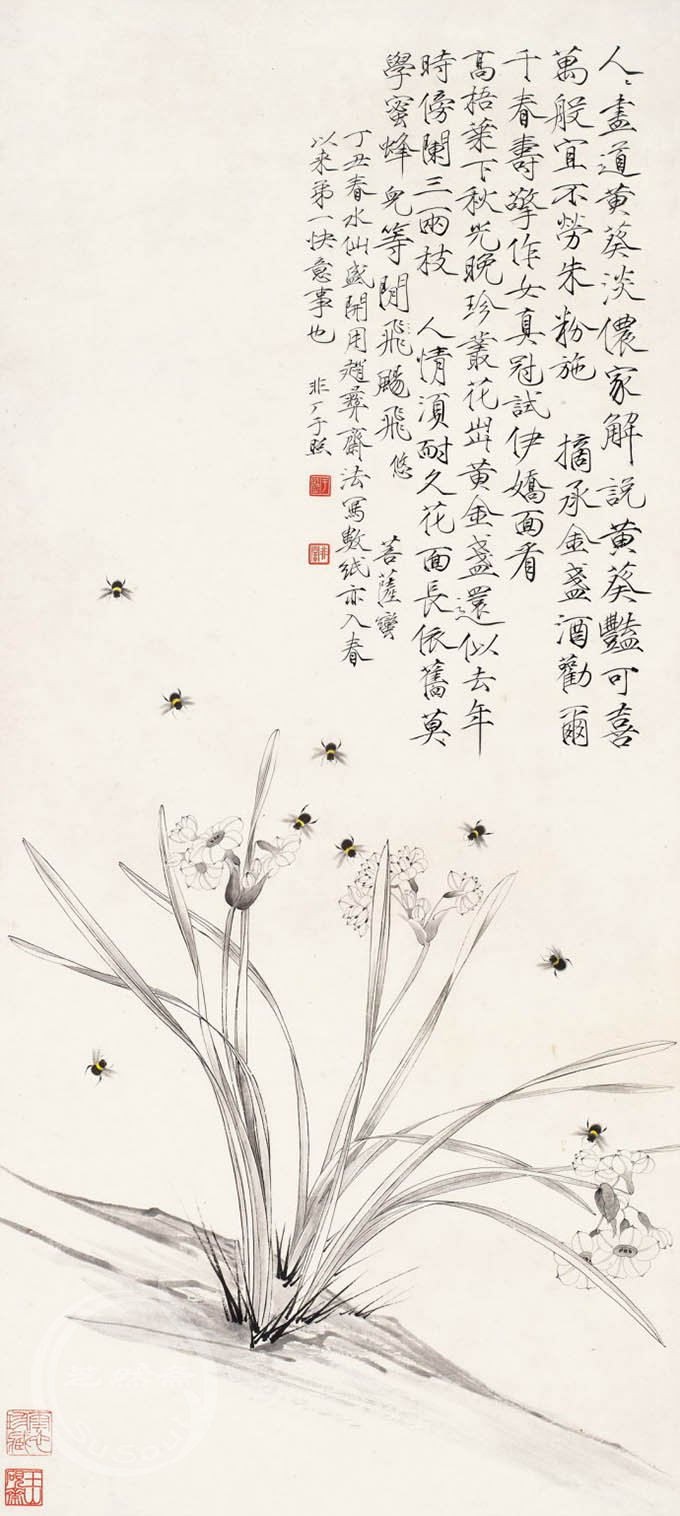 人〻盡道黄葵淡儂家解説黄葵豔可喜
萬般宜不勞朱粉施 摘承金盞酒勸爾
千春壽擎作女真冠試伊嬌面看
高梧葉下秋光晚珍叢花出黄金盞還似去年
時傍闌三兩枝 人情須耐久花面長依舊莫
學蜜蜂兒等閒飛颺飛悠 菩薩蠻
丁丑春水仙盛開用趙彝齋法寫數紙亦入春
以来第一快意事也 非厂于照